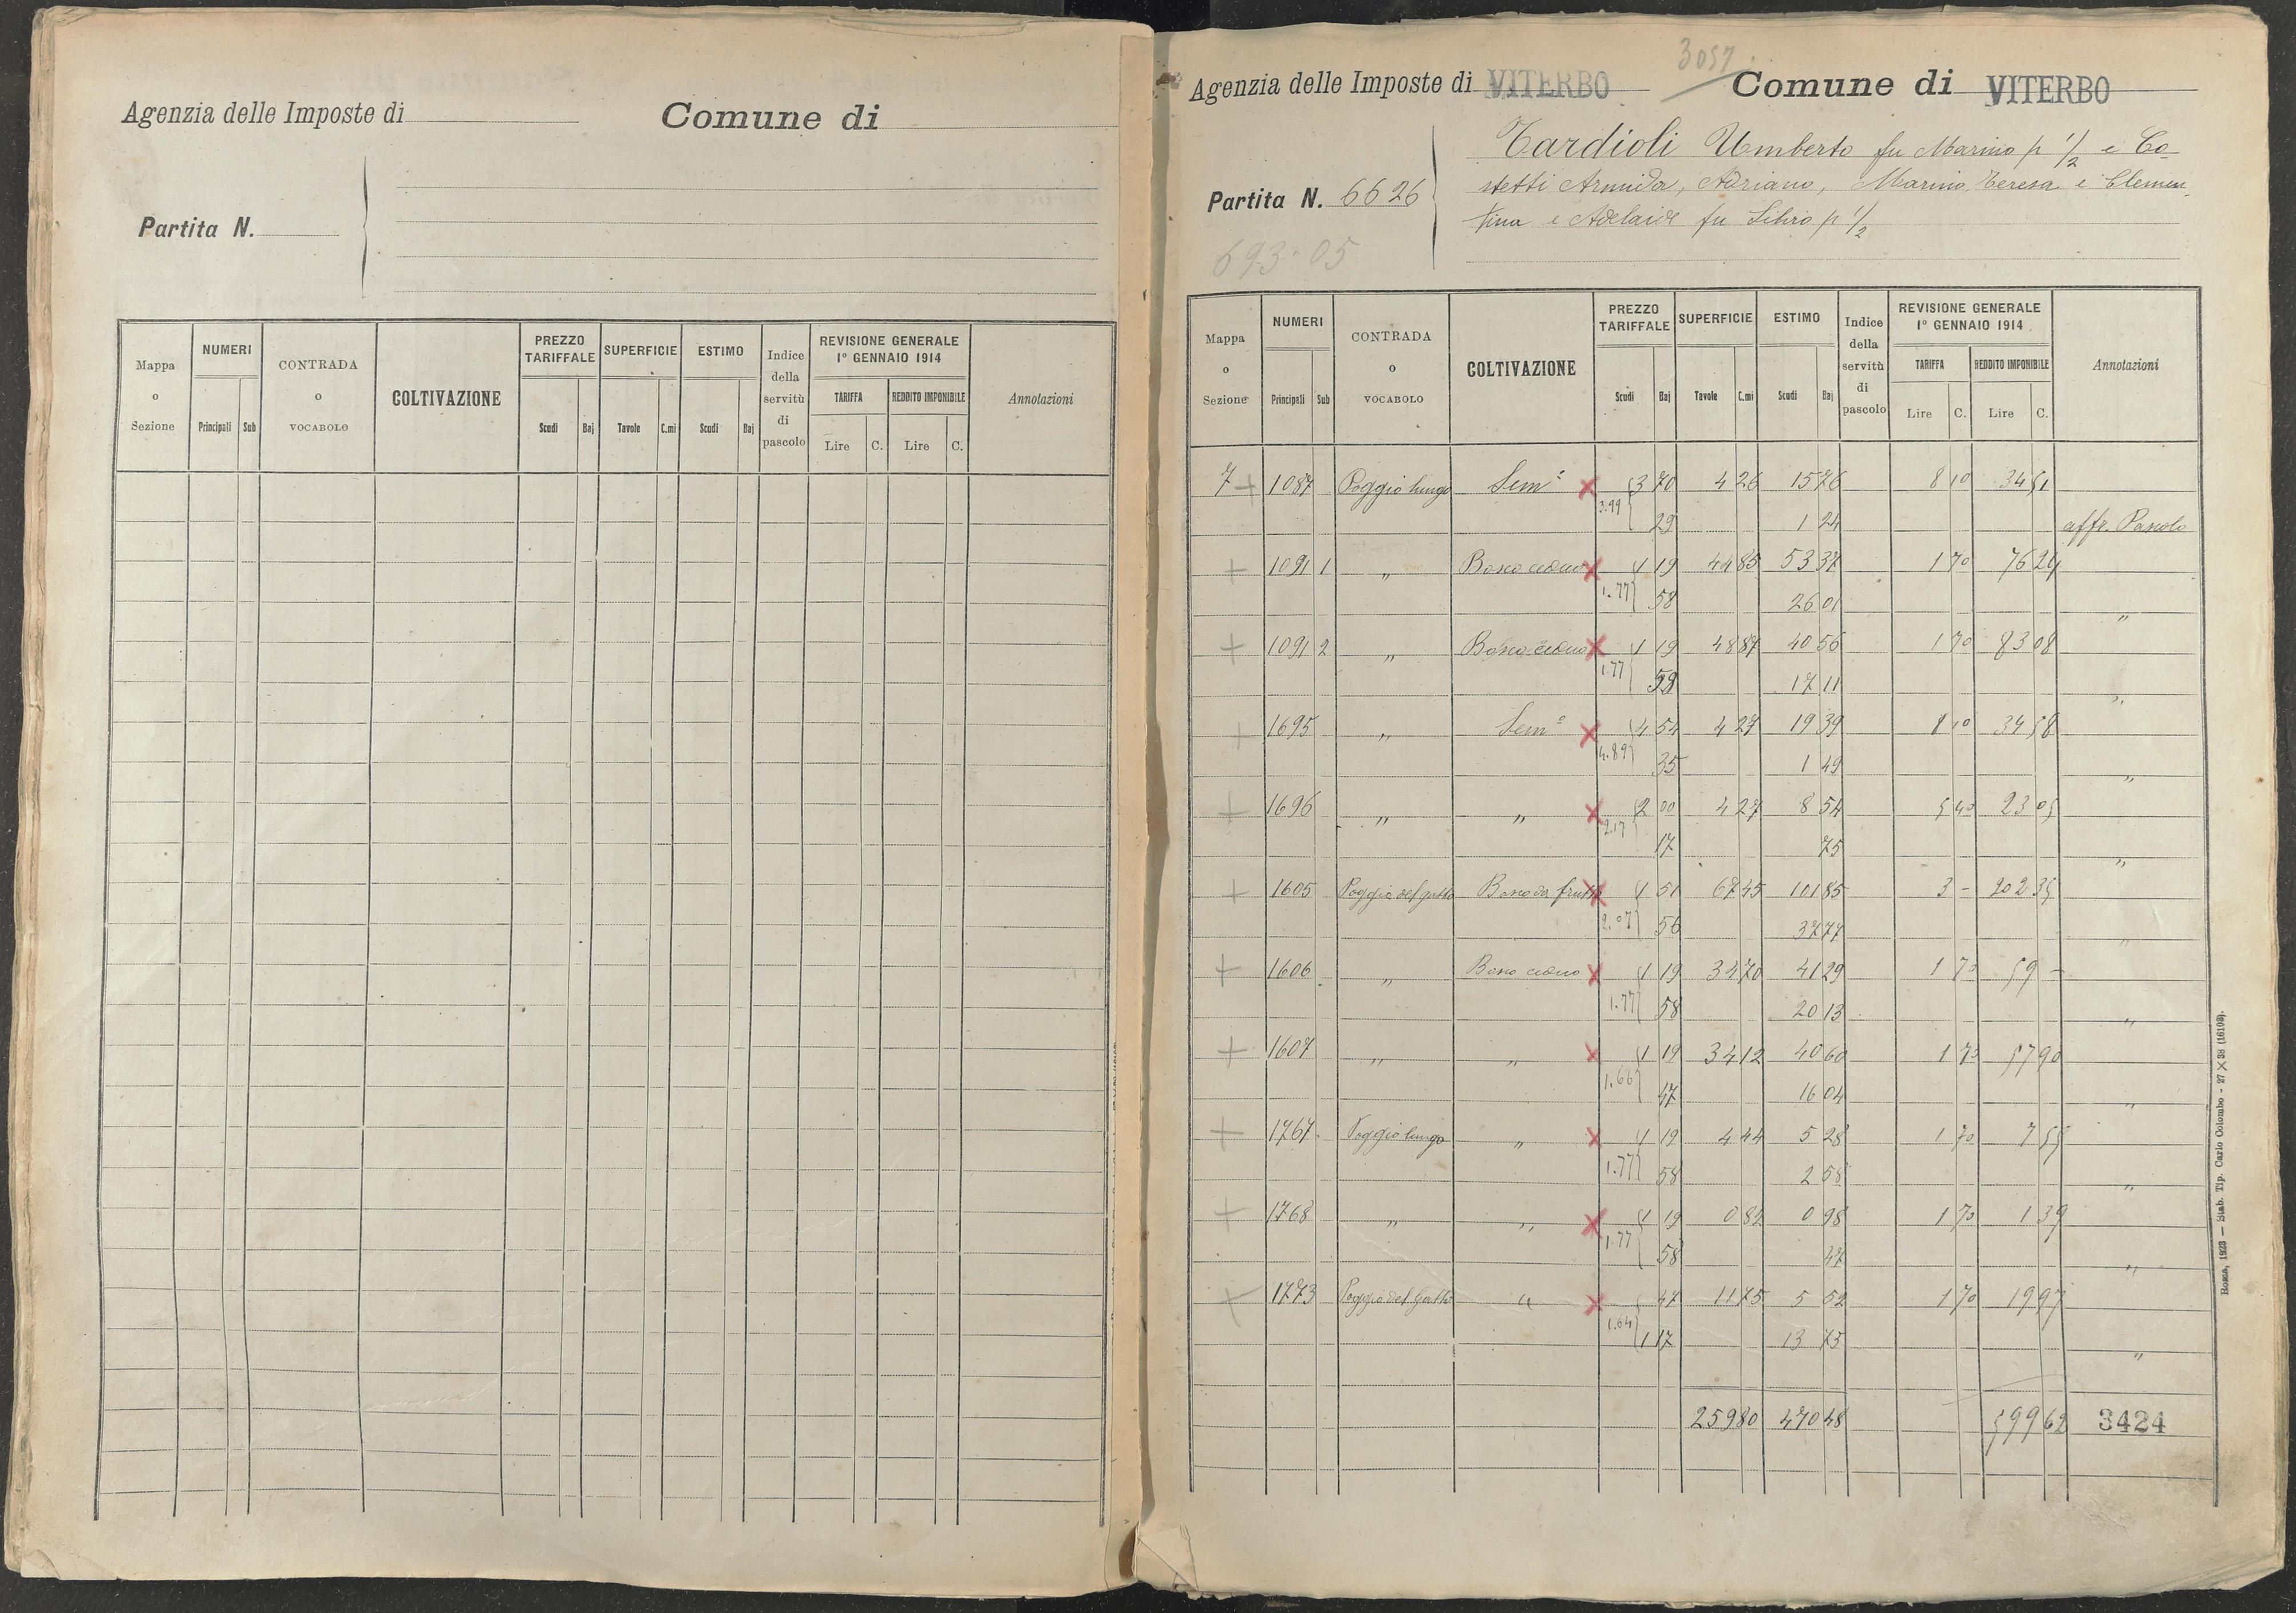 Agenzia delle Imposte di
Comune di
Partita N.
Mappa o Sezione
NUMERI
Principali
Sub
CONTRADA o VOCABOLO
COLTIVAZIONE
PREZZO TARIFFALE
Scudi
Baj
SUPERFICIE
Tavole
C.mi
ESTIMO
Scudi
Baj
Indice della servitù di pascolo
REVISIONE GENERALE
1° GENNAIO 1914
TARIFFA
Lire
C.
REDDITO IMPONIBILE
Lire
C.
Annotazioni
3057
Agenzia delle Imposte di VITERBO
Comune di VITERBO
Tardioli Umberto fu Marino p 1/2 e Co-
stetti Armida, Adriano, Marino, Teresa e Clemen-
tina e Adelaide fu Silvio p 1/2
Partita N. 6626
693.05
Mappa o Sezione
NUMERI
Principali
Sub
CONTRADA o VOCABOLO
COLTIVAZIONE
PREZZO TARIFFALE
Scudi
Baj
SUPERFICIE
Tavole
C.mi
ESTIMO
Scudi
Baj
Indice della servitù di pascolo
REVISIONE GENERALE
1° GENNAIO 1914
TARIFFA
Lire
C.
REDDITO IMPONIBILE
Lire
C.
Annotazioni
7 + 1087 Poggio lungo Sem° x 3 70 4 26 15 76 8 10 34 51
3.99 29 1 24 affr. Pascolo
+ 1091 1 " Bosco ceduo x 1 19 44 85 53 37 1 70 76 24
1.77 58 26 01 "
+ 1091 2 " Bosco ceduo x 1 19 48 87 40 56 1 70 83 08
1.77 58 17 11 "
+ 1695 " Sem° x 4 54 4 27 19 39 8 10 34 58
4.89 35 1 49 "
+ 1696 " " x 2 00 4 27 8 54 5 40 23 05
2.17 17 75 "
+ 1605 Poggio del gatto Bosco da frutto x 1 51 67 45 101 85 3 - 202 35
2.07 56 37 77 "
+ 1606 " Bosco ceduo x 1 19 34 70 41 29 1 70 59 -
1.77 58 20 13 "
+ 1607 " " x 1 19 34 12 40 60 1 70 57 90
1.66 47 16 04 "
+ 1767 Poggio lungo " x 1 19 4 44 5 28 1 70 7 55
1.77 58 2 58 "
+ 1768 " " x 1 19 0 82 0 98 1 70 1 39
1.77 58 47 "
+ 1773 Poggio del Gatto " x 47 11 75 5 52 1 70 19 97
1.64 1 17 13 75 "
259 80 470 48 599 62 3424
Roma, 1923 — Stab. Tip. Carlo Colombo - 27 X 38 (16103).